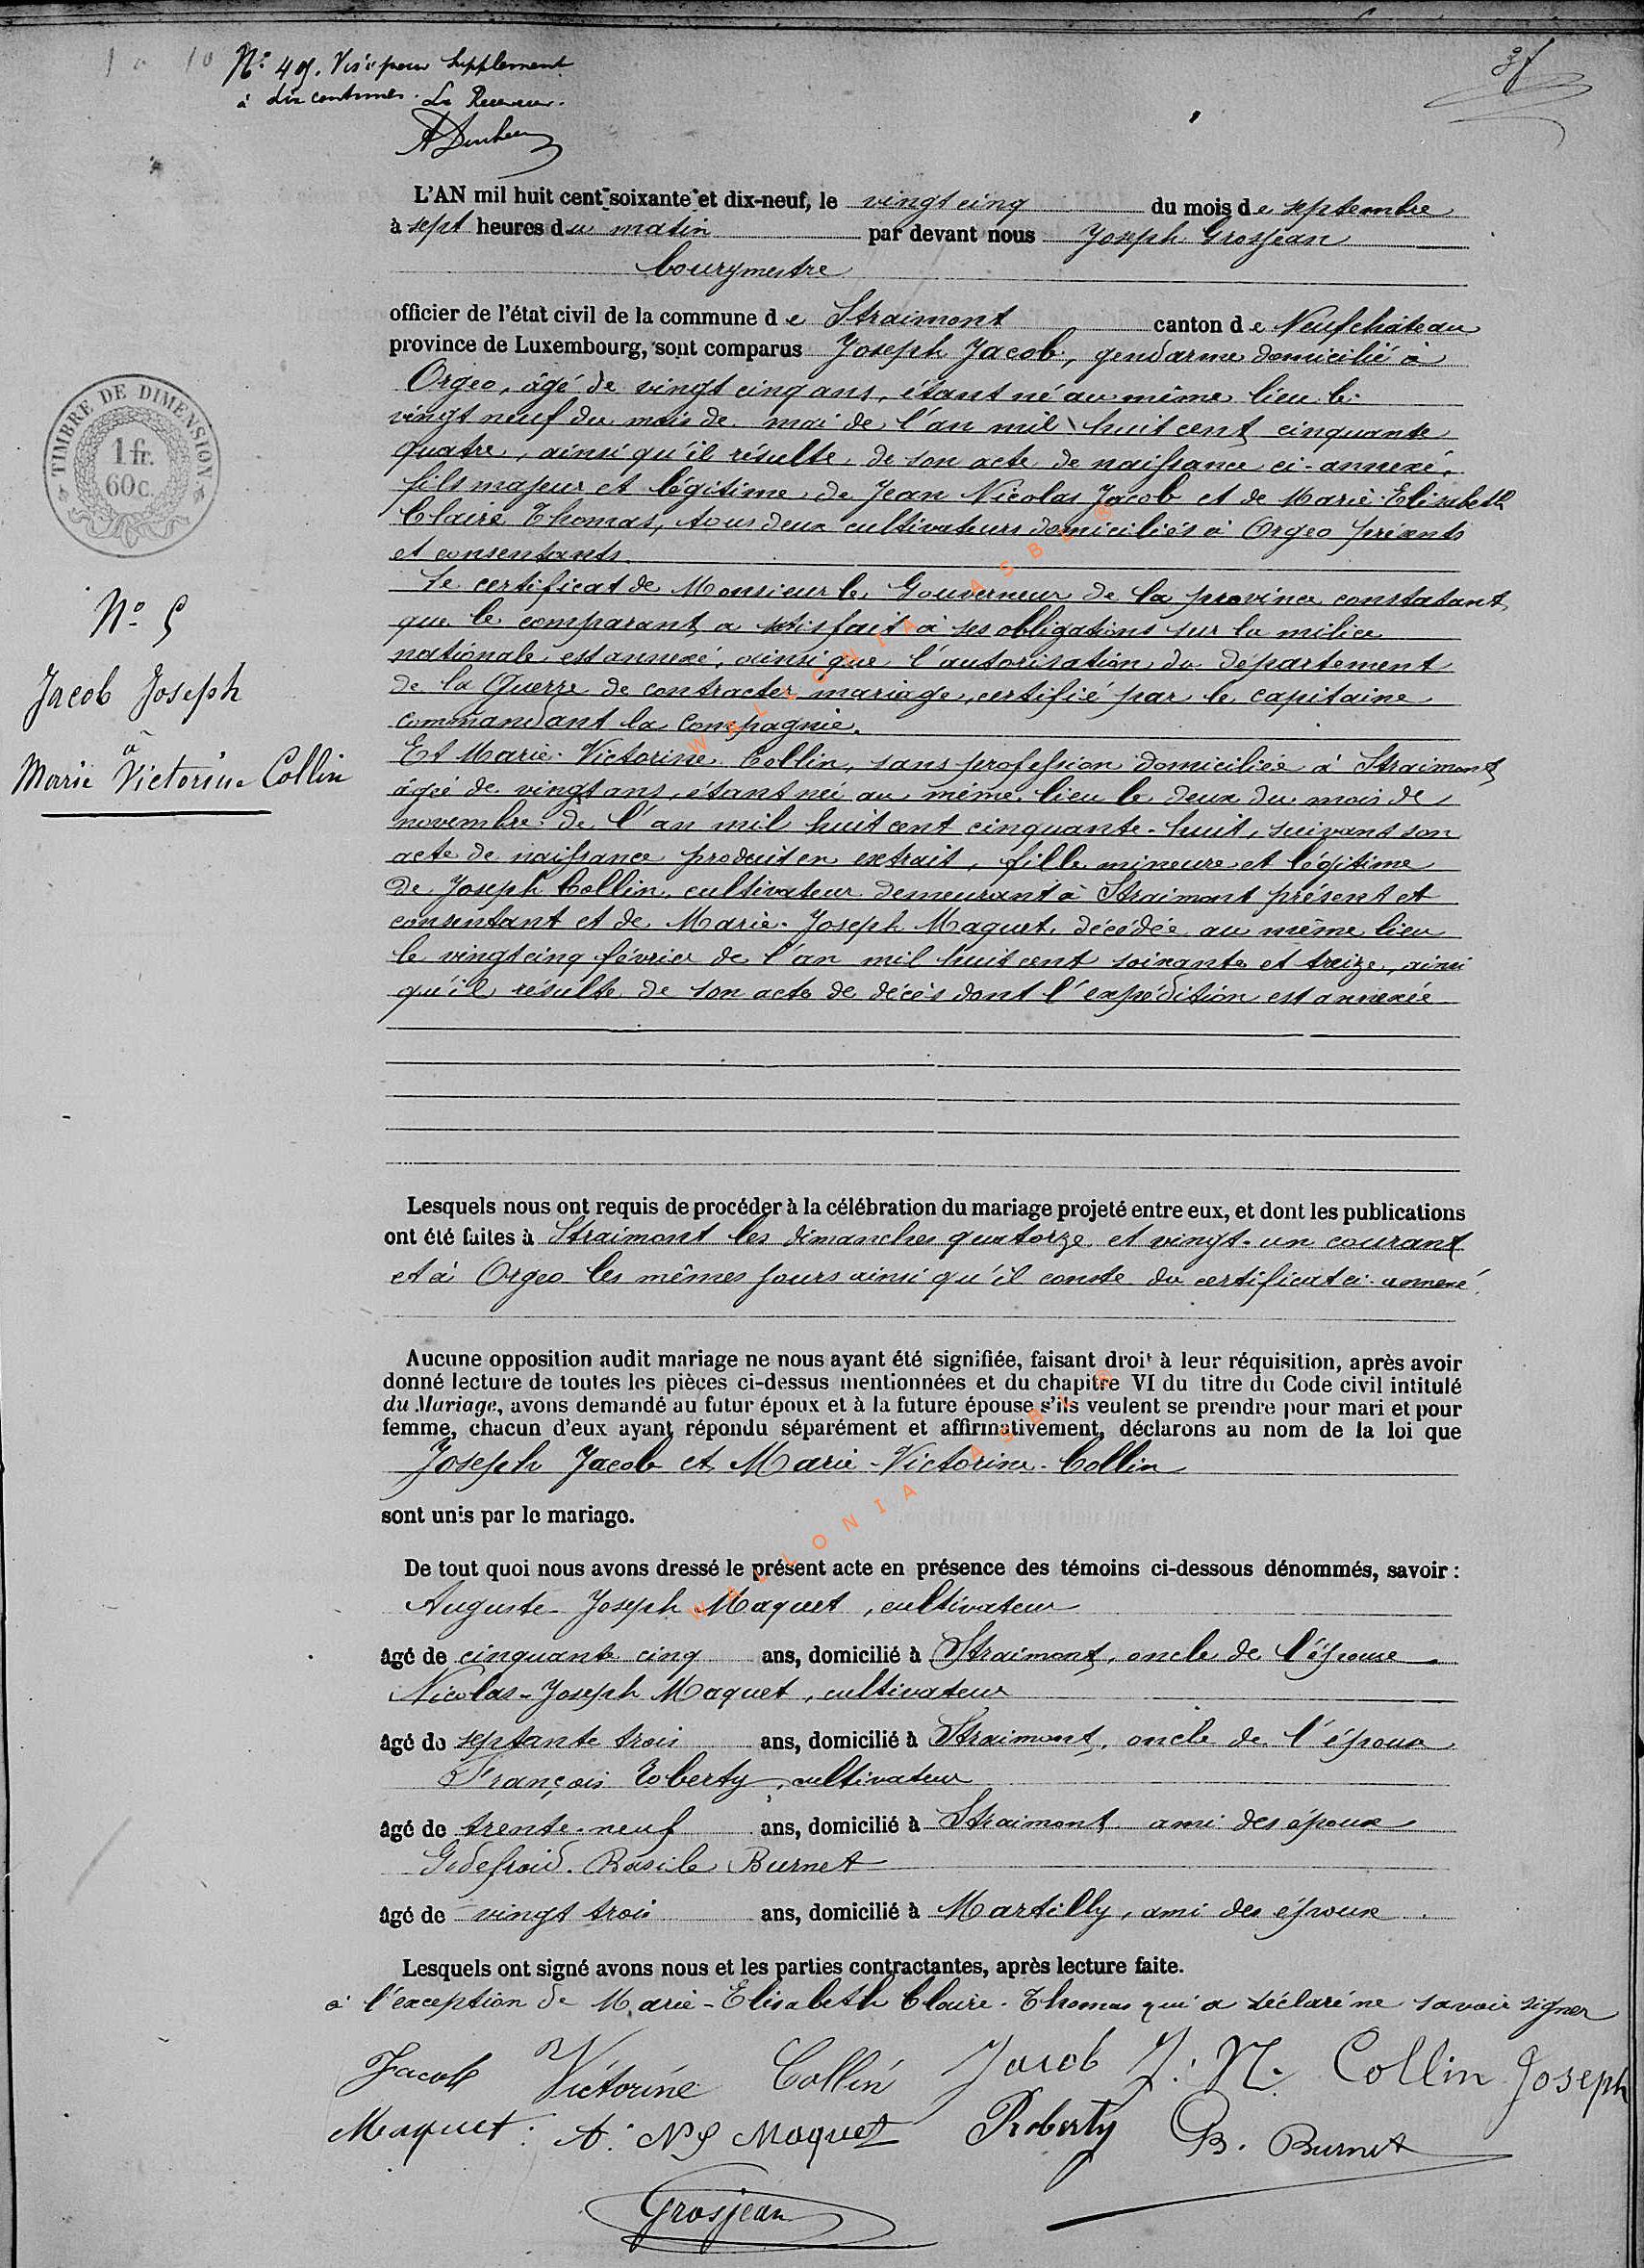 N° 49. Visé pour Supplement
à dix centimes. Le Receveur.
37
L'AN mil huit cent soixante et dix-neuf, le vingt cinq du mois de septembre
à sept heures du matin par devant nous Joseph Grosjean
bourgmestre
officier de l'état civil de la commune de Straimont canton de Neufchâteau
province de Luxembourg, sont comparus Joseph Jacob, gendarme domicilié à
Orgeo, âgé de vingt cinq ans, étant né au même lieu le
vingt neuf du mois de mai de l'an mil huit cent cinquante
quatre, ainsi qu'il résulte de son acte de naissance ci-annexé,
fils majeur et légitime de Jean Nicolas Jacob et de Marie-Elisabeth
Claire Thomas, tous deux cultivateurs domiciliés à Orgeo présents
et consentants.
Le certificat de Monsieur le Gouverneur de la province constatant
que le comparant a satisfait à ses obligations sur la milice
nationale est annexé, ainsi que l'autorisation du département
de la Guerre de contracter mariage, certifié par le capitaine
commandant la compagnie.
Et Marie-Victorine Collin, sans profession domiciliée à Straimont
âgée de vingt ans, étant née au même lieu le deux du mois de
novembre de l'an mil huit cent cinquante-huit, suivant son
acte de naissance produit en extrait, fille mineure et légitime
de Joseph Collin, cultivateur demeurant à Straimont présent et
consentant et de Marie-Joseph Maquet, décédée au même lieu
le vingt cinq février de l'an mil huit cent soixante et treize, ainsi
qu'il résulte de son acte de décès dont l'expédition est annexée
TIMBRE DE DIMENSION
1 fr.
60 c.
N° 5
Jacob Joseph
à
Marie Victorine Collin
Lesquels nous ont requis de procéder à la célébration du mariage projeté entre eux, et dont les publications
ont été faites à Straimont les dimanches quatorze et vingt-un courant
et à Orgeo les mêmes jours ainsi qu'il conste du certificat ci-annexé.
Aucune opposition audit mariage ne nous ayant été signifiée, faisant droit à leur réquisition, après avoir
donné lecture de toutes les pièces ci-dessus mentionnées et du chapitre VI du titre du Code civil intitulé
du Mariage, avons demandé au futur époux et à la future épouse s'ils veulent se prendre pour mari et pour
femme, chacun d'eux ayant répondu séparément et affirmativement, déclarons au nom de la loi que
Joseph Jacob et Marie-Victorine Collin
sont unis par le mariage.
De tout quoi nous avons dressé le présent acte en présence des témoins ci-dessous dénommés, savoir :
Auguste-Joseph Maquet, cultivateur
âgé de cinquante cinq ans, domicilié à Straimont, oncle de l'épouse
Nicolas-Joseph Maquet, cultivateur
âgé de septante trois ans, domicilié à Straimont, oncle de l'épouse
François Roberty, cultivateur
âgé de trente-neuf ans, domicilié à Straimont ami des époux
Godefroid-Basile Burnet
âgé de vingt trois ans, domicilié à Martilly, ami des époux.
Lesquels ont signé avons nous et les parties contractantes, après lecture faite.
à l'exception de Marie-Elisabeth Claire-Thomas qui a déclaré ne savoir signer
Jacob Victorine Collin Jacob J. N. Collin Joseph
Maquet. A. NJ Maquet Roberty GB. Burnet
Grosjean
WALLONIA ASBL ®
WALLONIA ASBL ®